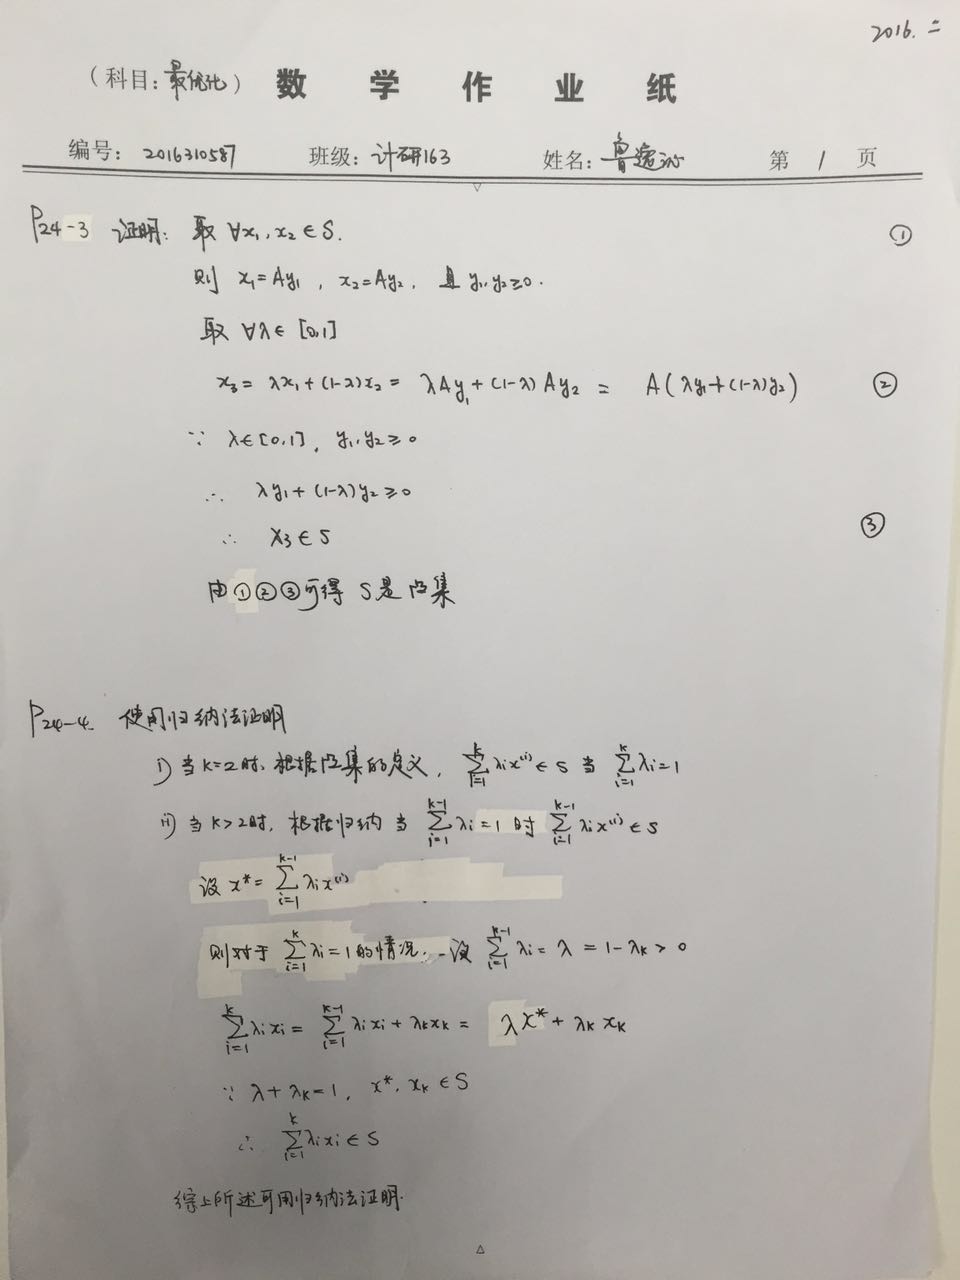 2016. 二
(科目: 最优化) 数 学 作 业 纸
编号: 2016310587 班级: 计研163 姓名: 鲁逸沁 第 1 页
P24-3 证明: 取 ∀x₁, x₂ ∈ S. ①
则 x₁=Ay₁, x₂=Ay₂, 且 y₁,y₂≥0.
取 ∀λ∈ [0,1]
x₃= λx₁+(1-λ)x₂= λAy₁+(1-λ)Ay₂ = A(λy₁+(1-λ)y₂) ②
∵ λ∈[0,1], y₁,y₂≥0
∴ λy₁+(1-λ)y₂≥0
∴ x₃∈S ③
由①②③可得 S是凸集
P24-4. 使用归纳法证明
i) 当k=2时, 根据凸集的定义, ∑_{i=1}^{k} λᵢx⁽ⁱ⁾∈S 当 ∑_{i=1}^{k} λᵢ=1
ii) 当k>2时, 根据归纳 当 ∑_{i=1}^{k-1} λᵢ=1 时 ∑_{i=1}^{k-1} λᵢx⁽ⁱ⁾∈S
设 x*= ∑_{i=1}^{k-1} λᵢx⁽ⁱ⁾
则对于 ∑_{i=1}^{k} λᵢ=1的情况, 设 ∑_{i=1}^{k-1} λᵢ= λ = 1-λₖ > 0
∑_{i=1}^{k} λᵢxᵢ= ∑_{i=1}^{k-1} λᵢxᵢ+λₖxₖ= λx*+λₖxₖ
∵ λ+λₖ=1, x*, xₖ∈S
∴ ∑_{i=1}^{k} λᵢxᵢ∈S
综上所述可用归纳法证明.